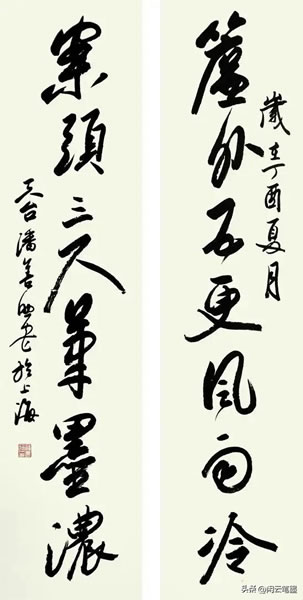 簾外五更風雨冷
歲在丁酉夏月
案頭三尺筆墨濃
天台潘善助書於上海
头条 @闲云笔墨